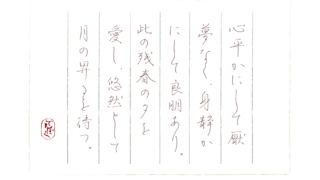 心平かにして厭
夢なく、身静か
にして良朋あり。
此の残春の夕を
愛し、悠然として
月の昇るを待つ。